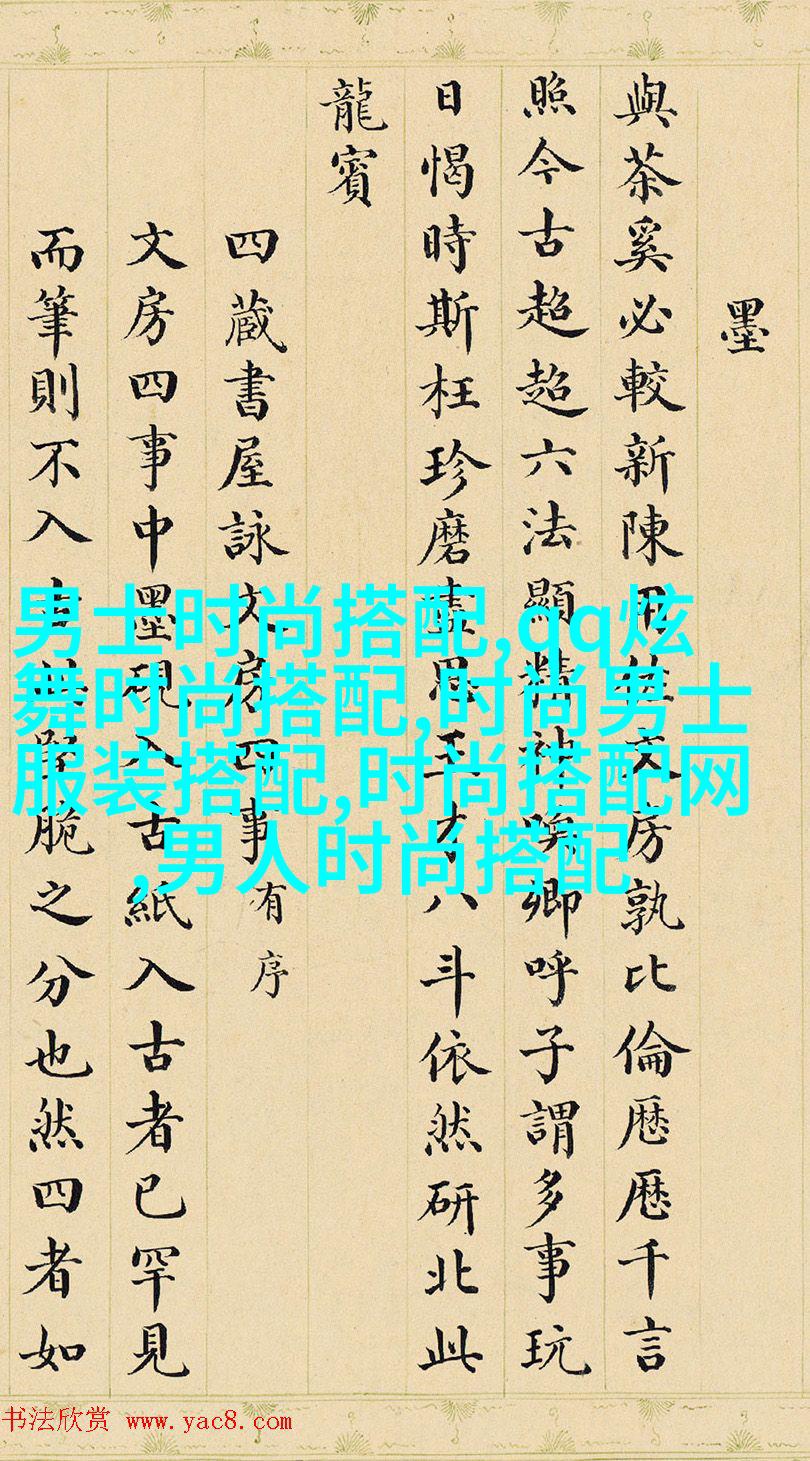 墨
與茶奚必較新陳用佐文房孰比倫歴歴千言
照今古超超六法顯精神喚卿呼子謂多事玩
日愒時斯枉珍磨盡思王才八斗依然研北此
龍賓
四蔵書屋詠文房四事有序
文房四事中墨硯入古紙入古者已罕見
而筆則不入古堅脆之分也然四者如
男士时尚搭配,qq炫
舞时尚搭配,时尚男士
服装搭配,时尚搭配网
,男人时尚搭配
书法欣赏 www.yac8.com